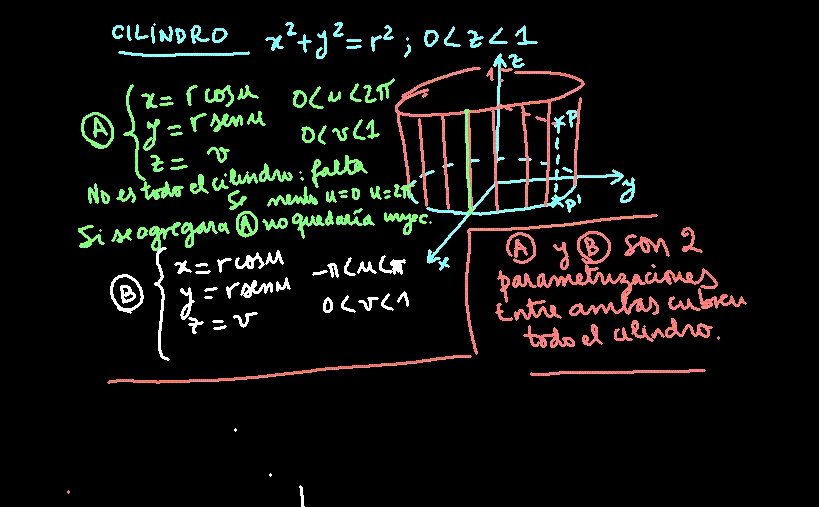 CILINDRO x² + y² = r² ; 0 < z < 1
Ⓐ
x = r cos u 0 < u < 2π
y = r sen u 0 < v < 1
z = v
No es todo el cilindro : falta
u=0 u=2π
Si se agregara Ⓐ no quedaría inyec.
Ⓑ
x = r cos u -π < u < π
y = r sen u 0 < v < 1
z = v
1
z
P
y
P'
x
Ⓐ y Ⓑ son 2
parametrizaciones
Entre ambas cubren
todo el cilindro.